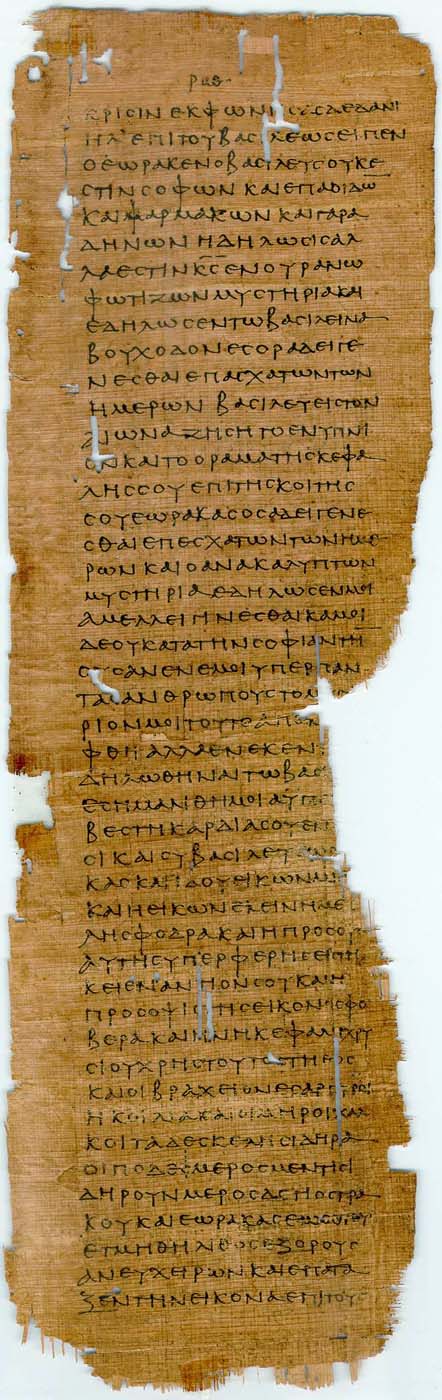 ΚΡΙϹΙΝ ΕΚΦΩΝΗϹΑϹ ΔΕ ΔΑΝΙ
ΗΛ ΕΠΙ ΤΟΥ ΒΑϹΙΛΕΩϹ ΕΙΠΕΝ
Ο ΕΩΡΑΚΕΝ Ο ΒΑϹΙΛΕΥϹ ΟΥΚ Ε
ϹΤΙΝ ϹΟΦΩΝ ΚΑΙ ΕΠΑΟΙΔΩ
ΚΑΙ ΦΑΡΜΑΚΩΝ ΚΑΙ ΓΑΡΑ
ΔΗΝΩΝ Η ΔΗΛΩϹΙϹ ΑΛ
ΛΑ ΕϹΤΙΝ ΚϹ ΕΝ ΟΥΡΑΝΩ
ΦΩΤΙΖΩΝ ΜΥϹΤΗΡΙΑ ΚΑΙ
ΕΔΗΛΩϹΕΝ ΤΩ ΒΑϹΙΛΕΙ ΝΑ
ΒΟΥΧΟΔΟΝΕϹΟΡ Α ΔΕΙ ΓΕ
ΝΕϹΘΑΙ ΕΠ ΑϹΧΑΤΩΝ ΤΩΝ
ΗΜΕΡΩΝ ΒΑϹΙΛΕΥ ΕΙϹ ΤΟΝ
ΑΙΩΝΑ ΖΗϹΗ ΤΟ ΕΝΥΠΝΙ
ΟΝ ΚΑΙ ΤΟ ΟΡΑΜΑ ΤΗϹ ΚΕΦΑ
ΛΗϹ ϹΟΥ ΕΠΙ ΤΗϹ ΚΟΙΤΗϹ
ϹΟΥ ΕΩΡΑΚΑϹ ΟϹΑ ΔΕΙ ΓΕΝΕ
ϹΘΑΙ ΕΠ ΕϹΧΑΤΩΝ ΤΩΝ ΗΜΕ
ΡΩΝ ΚΑΙ Ο ΑΝΑΚΑΛΥΠΤΩΝ
ΜΥϹΤΗΡΙΑ ΕΔΗΛΩϹΕΝ ϹΟΙ
Α ΜΕΛΛΕΙ ΓΙΝΕϹΘΑΙ ΚΑΜΟΙ
ΔΕ ΟΥ ΚΑΤΑ ΤΗΝ ϹΟΦΙΑΝ ΤΗ
ΟΥϹΑΝ ΕΝ ΕΜΟΙ ΥΠΕΡ ΠΑΝ
ΤΑϹ ΑΝΘΡΩΠΟΥϹ ΤΟ
ΡΙΟΝ ΜΟΙ ΤΟΥΤΟ
ΦΘΗ ΑΛΛ ΕΝΕΚΕΝ
ΔΗΛΩΘΗΝΑΙ ΤΩ ΒΑϹ
ΕϹΗΜΑΝΘΗ ΜΟΙ Α ΥΠΕ
ΒΕϹ ΤΗ ΚΑΡΔΙΑ ϹΟΥ ΕΝ
ϹΙ ΚΑΙ ϹΥ ΒΑϹΙΛΕΥ
ΚΑϹ ΚΑΙ ΙΔΟΥ ΕΙΚΩΝ ΜΙΑ
ΚΑΙ Η ΕΙΚΩΝ ΕΚΕΙΝΗ ΜΕΓΑ
ΛΗ ϹΦΟΔΡΑ ΚΑΙ Η ΠΡΟϹΟΨ
ΑΥΤΗϹ ΥΠΕΡΦΕΡΗϹ ΕΙϹΤΗ
ΚΕΙ ΕΝΑΝΤΙΟΝ ϹΟΥ ΚΑΙ Η
ΠΡΟϹΟΨΙϹ ΤΗϹ ΕΙΚΟΝΟϹ ΦΟ
ΒΕΡΑ ΚΑΙ ΗΝ Η ΚΕΦΑΛΗ ΧΡΥ
ϹΙΟΥ ΧΡΗϹΤΟΥ ΤΟ ϹΤΗΘΟϹ
ΚΑΙ ΟΙ ΒΡΑΧΕΙΟΝΕϹ ΑΡΓΥΡΟΙ
Η ΚΟΙΛΙΑ ΚΑΙ ΟΙ ΜΗΡΟΙ ΧΑΛ
ΚΟΙ ΤΑ ΔΕ ϹΚΕΛΗ ϹΙΔΗΡΑ
ΟΙ ΠΟΔΕϹ ΜΕΡΟϹ ΜΕΝ ΤΙ ϹΙ
ΔΗΡΟΥΝ ΜΕΡΟϹ ΔΕ ΤΙ ΟϹΤΡΑ
ΚΟΥ ΚΑΙ ΕΩΡΑΚΑϹ ΕΩϹ ΟΤΟΥ
ΕΤΜΗΘΗ ΛΙΘΟϹ ΕΞ ΟΡΟΥϹ
ΑΝΕΥ ΧΕΙΡΩΝ ΚΑΙ ΕΠΑΤΑ
ΞΕΝ ΤΗΝ ΕΙΚΟΝΑ ΕΠΙ ΤΟΥϹ